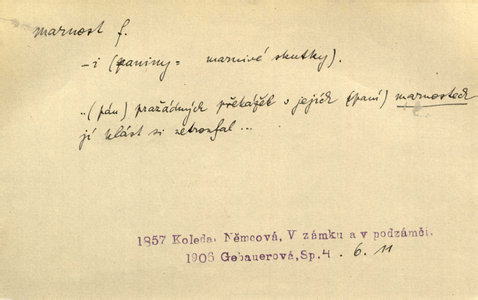 marnost f.
-i (paniny = marnivé skutky).
„(pán) pražádných překážek v jejích (paní) marnostech
jí klást si netroufal ...
1857 Koleda. Němcová, V zámku a v podzámčí.
1906 Gebauerová, Sp. 4. 6. 11